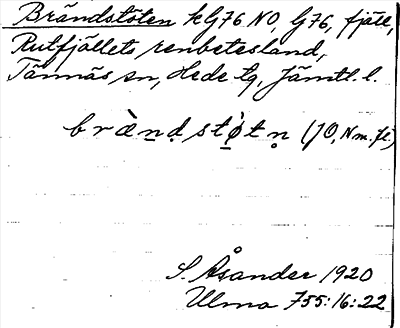 Brändstöten k G76 NO, G76, fjäll,
Rutfjällets renbetesland,
Tännäs sn, Hede tg, Jämtl. l.
bræ̀n̥dstø̀tn̥ (JO, Nm. fl.)
S. Åsander 1920
Ulma 755:16:22